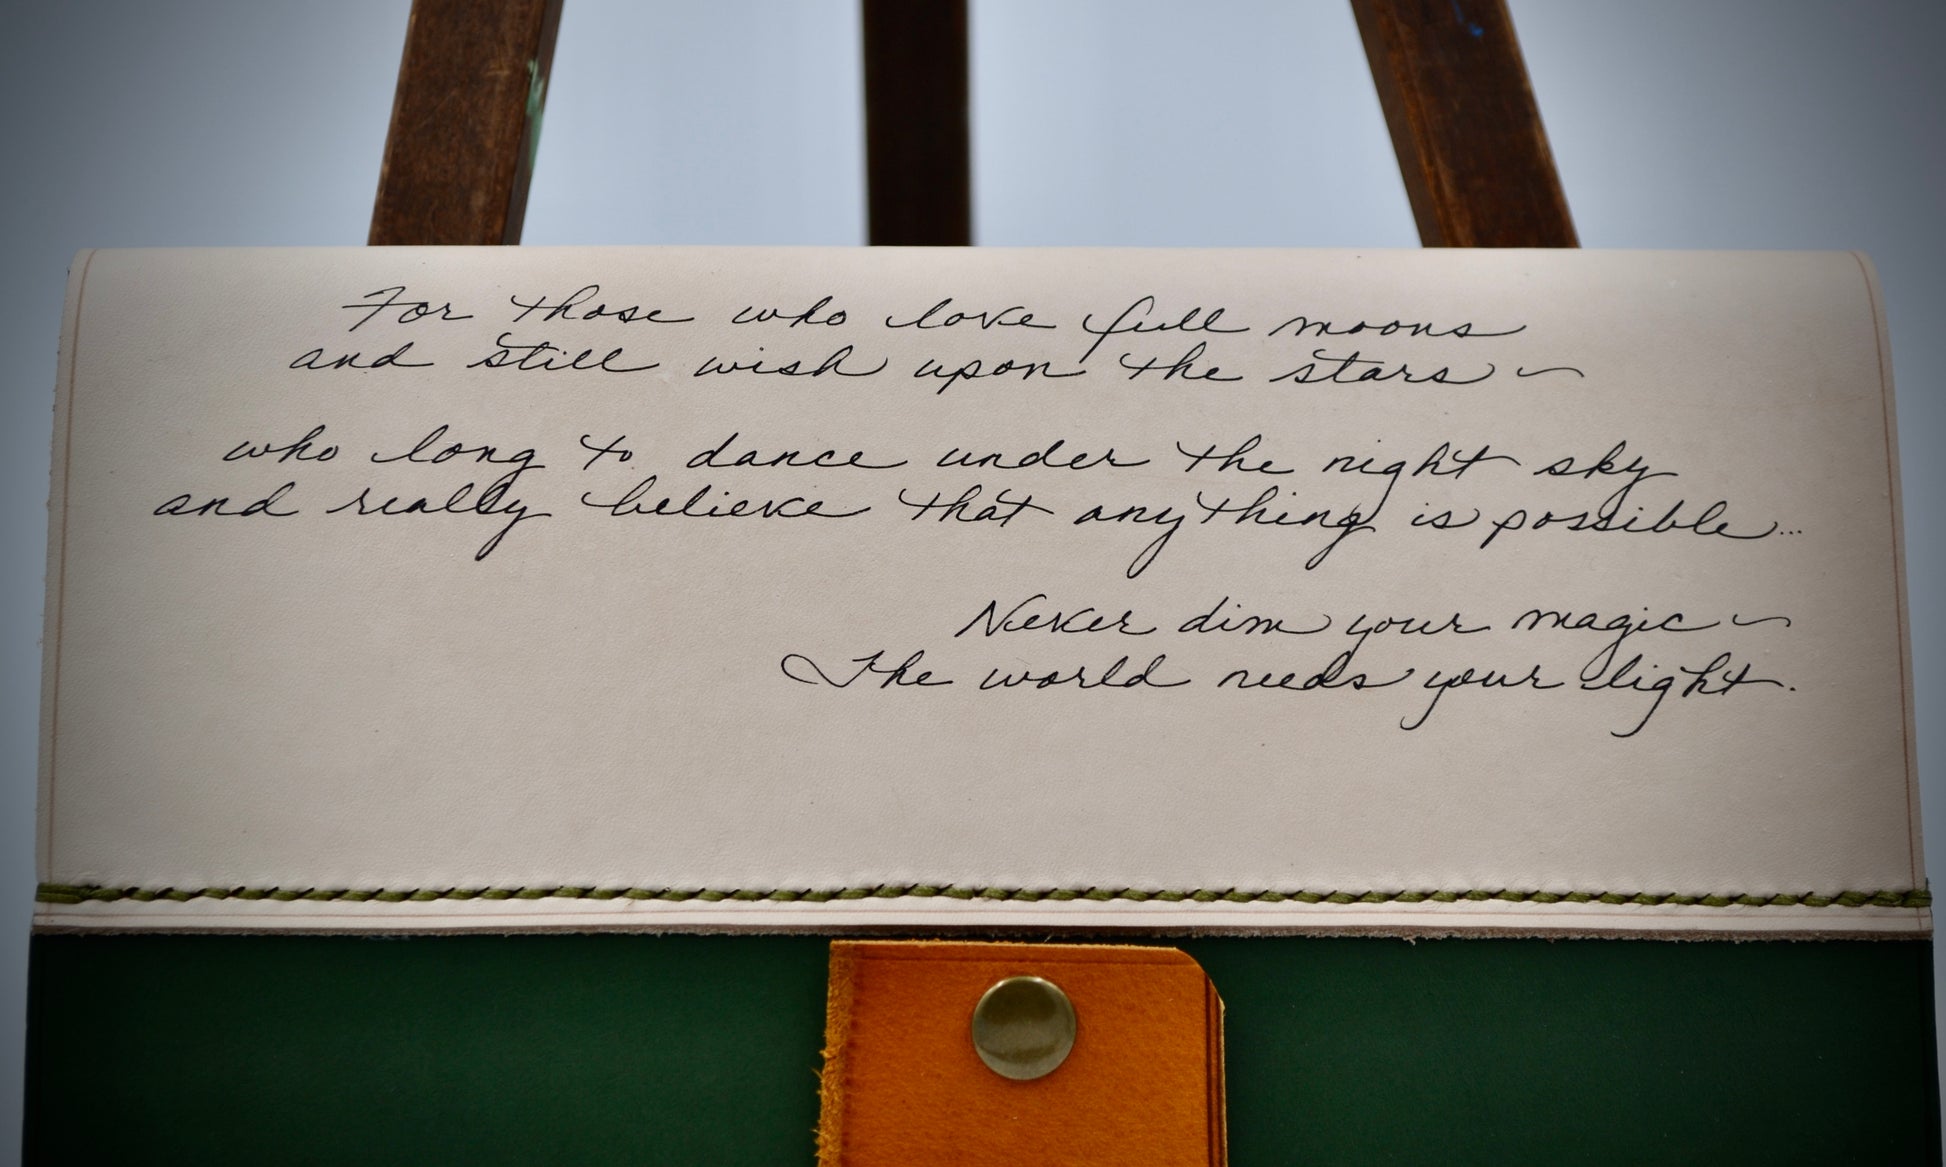 For those who love full moons
and still wish upon the stars ~
who long to dance under the night sky
and really believe that anything is possible...
Never dim your magic ~
The world needs your light.